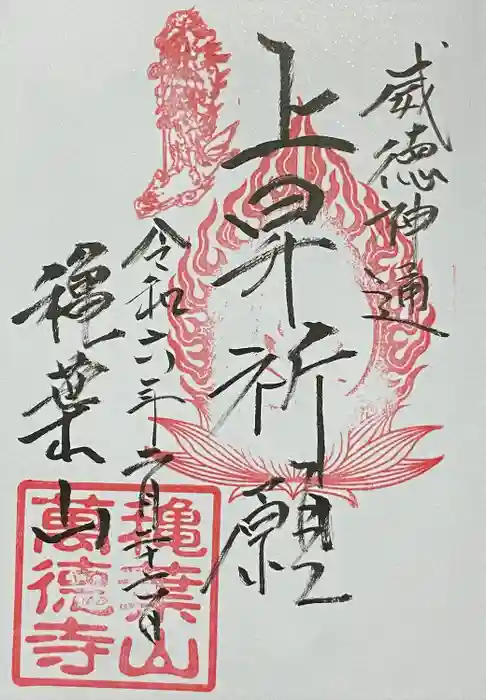 威徳神通
上昇祈願
令和六年二月二十二日
穐葉山
穐葉山
萬徳寺